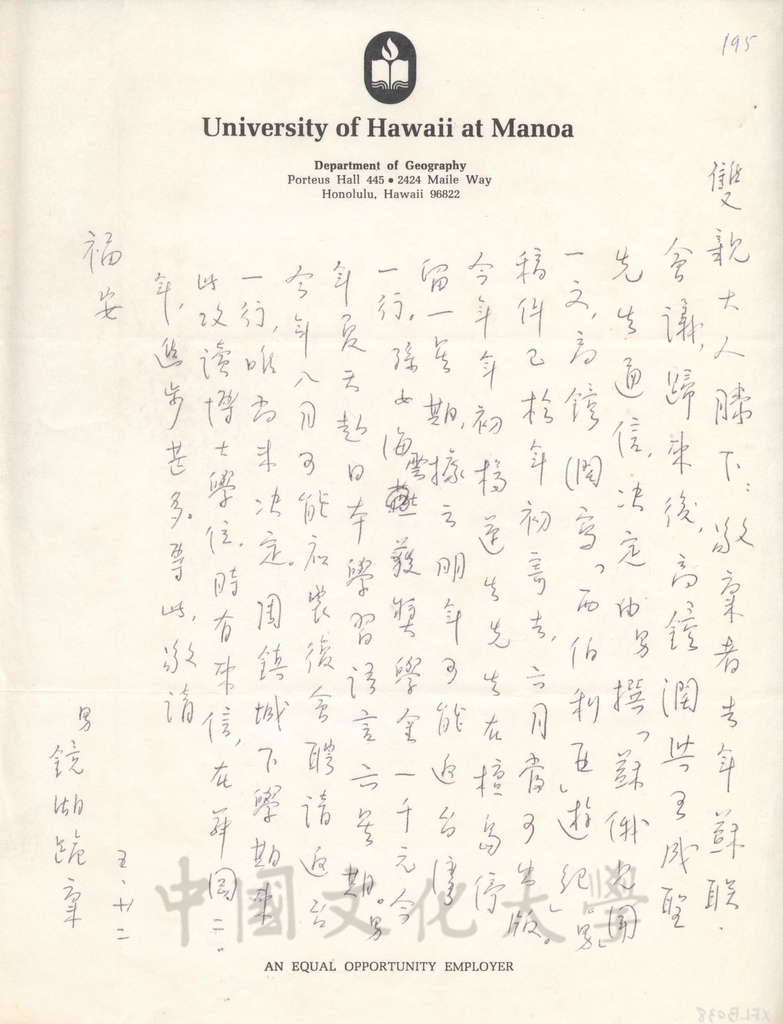 195
University of Hawaii at Manoa
Department of Geography
Porteus Hall 445 • 2424 Maile Way
Honolulu, Hawaii 96822
雙親大人膝下：敬稟者去年蘇联
會議，歸來後，高鏡潤與王成聖
先生通信，決定由男撰「蘇俄見聞」
一文，高鏡潤寫「西伯利亞遊紀」。男
稿件已於年初寄去，六月當可出版。
今年年初橋先生在檀島停
留一星期，據云明年可能返台灣
一行。孫女海雲獲獎學金一千元今
年夏天赴日本學習語言六星期。男
今年八月可能應農復會聘請返台
一行，唯尚未決定。周鎮城下學期來
此攻讀博士學位。時有來信，在祥國二
年，進步甚多。專此，敬請
福安
男鏡湖跪稟
五、廿二
中國文化大學
AN EQUAL OPPORTUNITY EMPLOYER
XFLB038